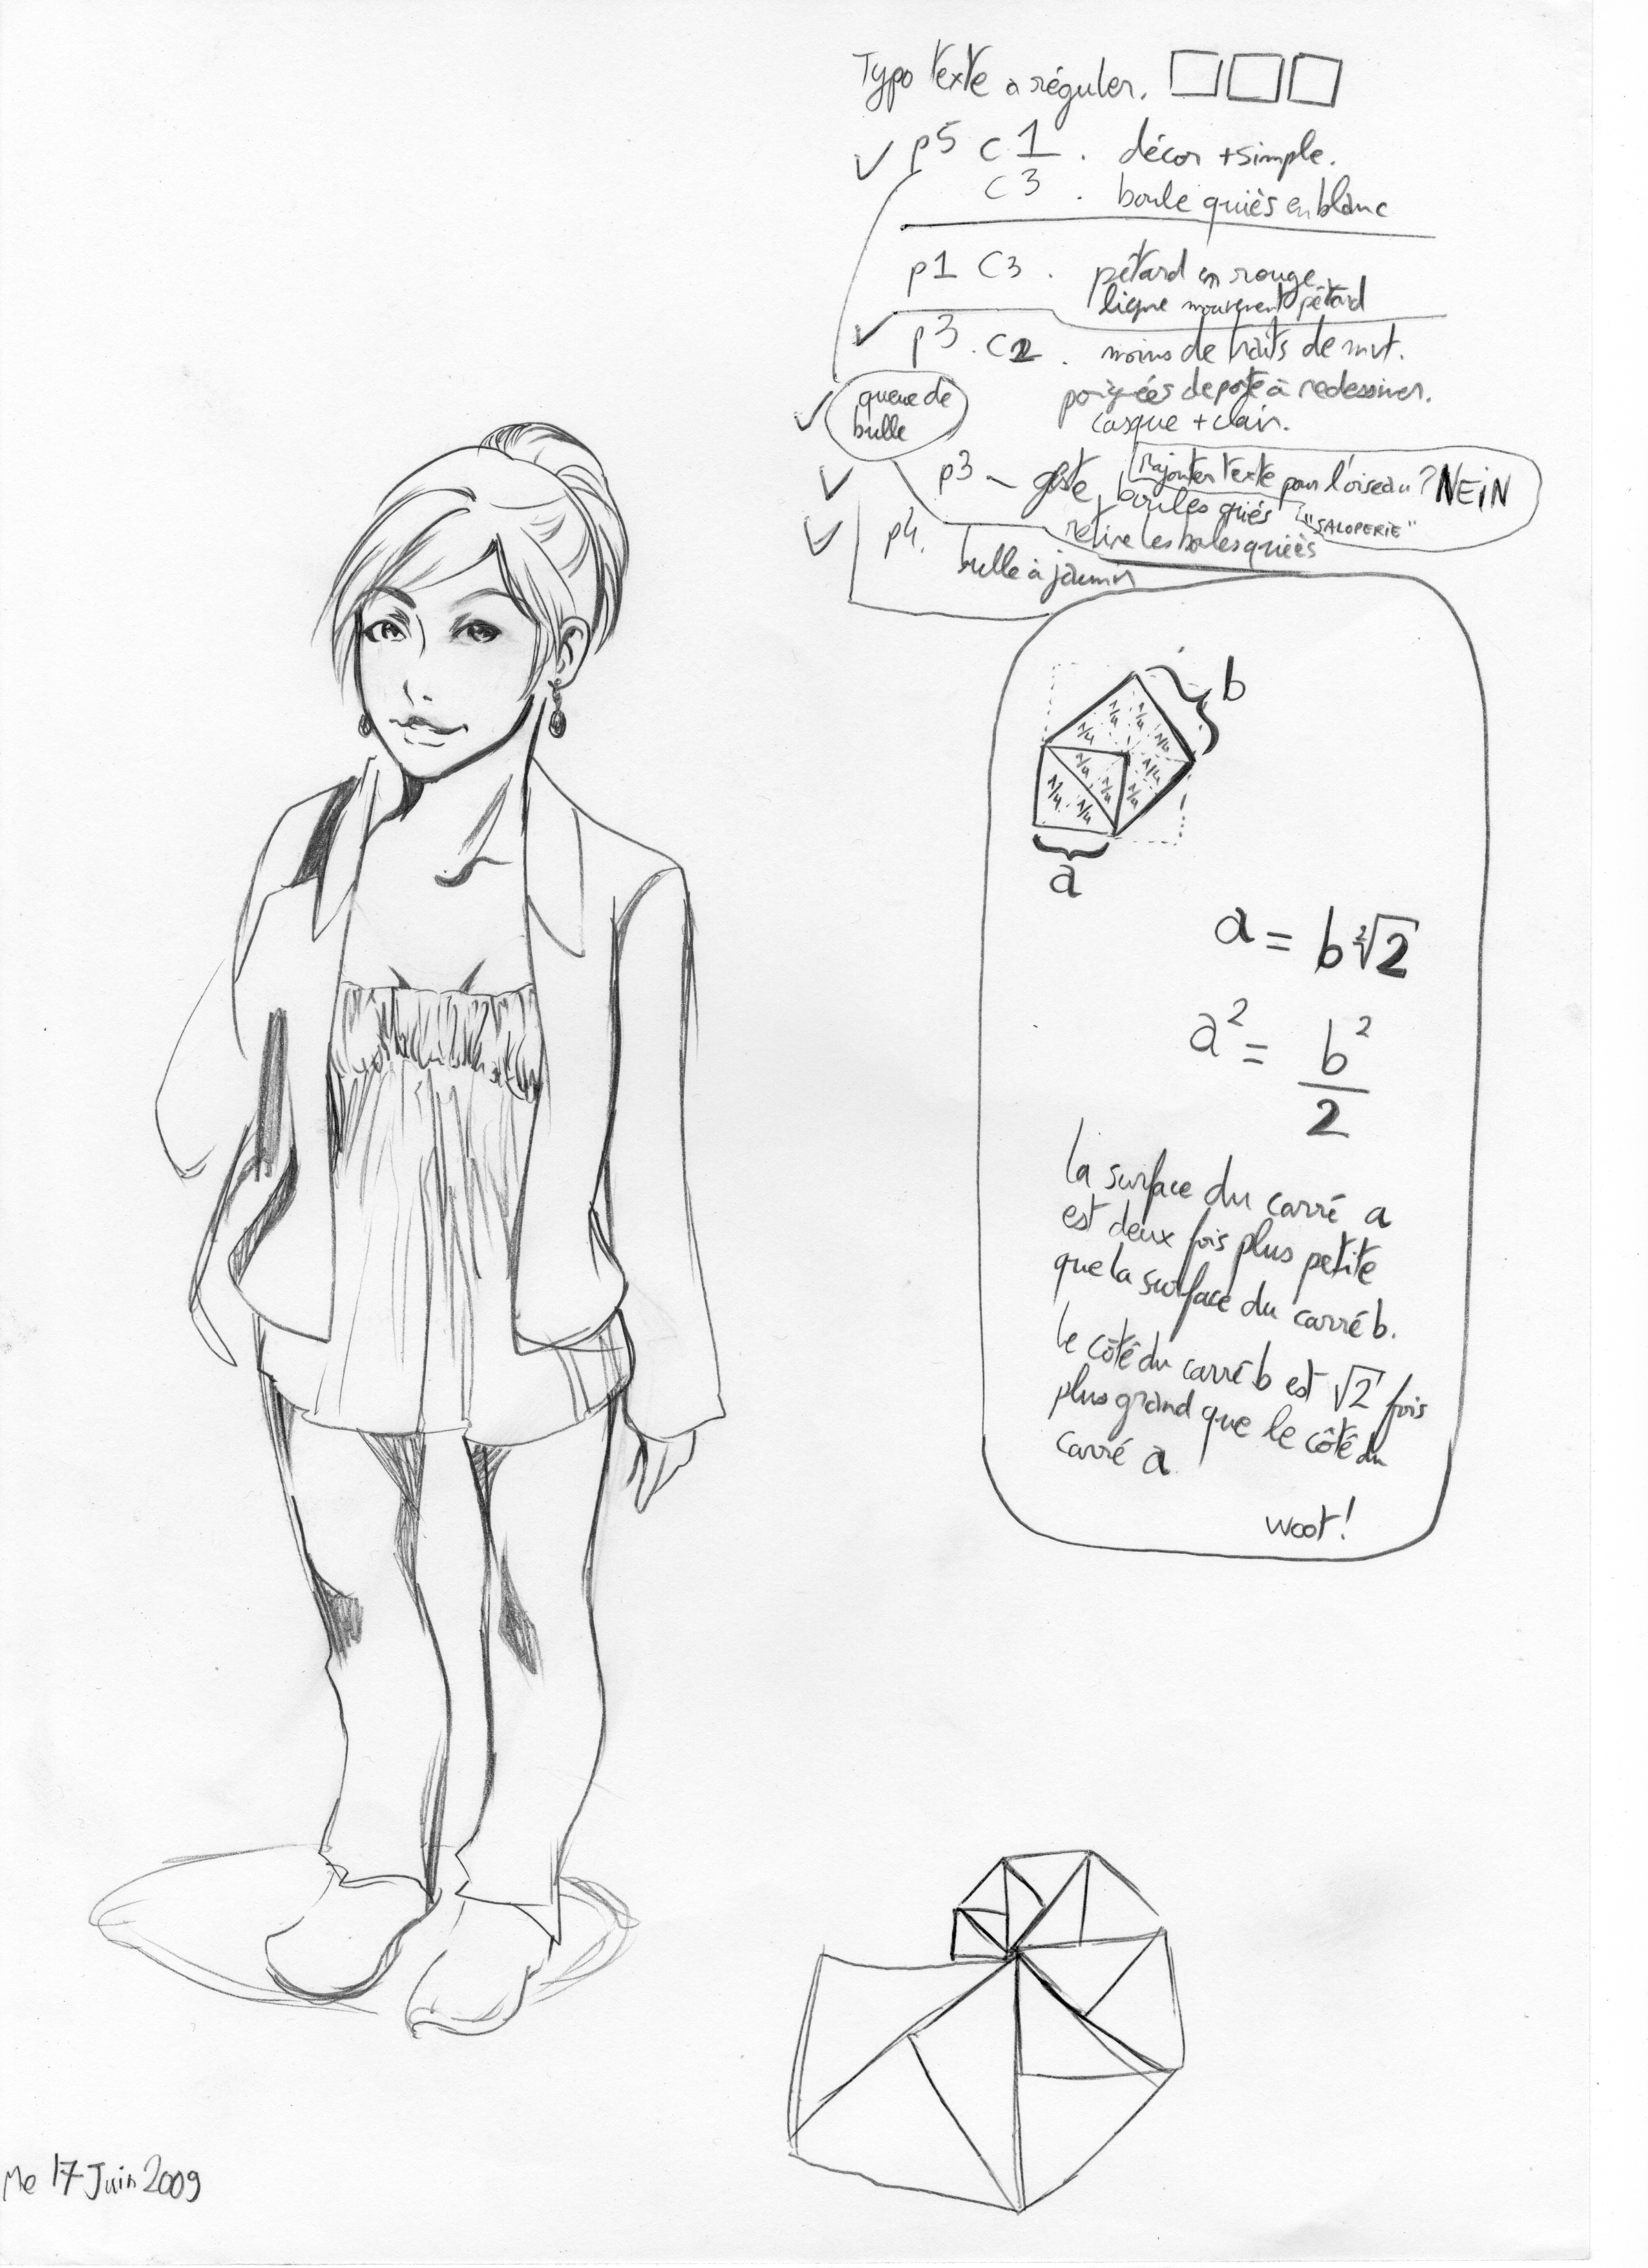 Typo texte à réguler.
p5 c1. décor + simple.
c3. boule quiès en blanc
p1 C3. pétard en rouge.
ligne mouvement pétard
p3. C2. moins de traits de mvt.
poignées de porte à redessiner.
casque + clair.
queue de
bulle
p3 - geste, boules quiés
rajouter texte pour l'oiseau? NEIN
"SALOPERIE"
retire les boules quiès
p4. bulle à
b
1/4 1/4 1/4 1/4
1/4 1/4 1/4 1/4
1/4 1/4
a
a = b ²√2
a² = b²
2
la surface du carré a
est deux fois plus petite
que la surface du carré b.
le côté du carré b est √2 fois
plus grand que le côté du
carré a
woot!
Me 17 Juin 2009